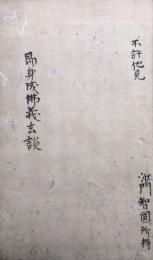 不許他見
即身成佛義玄談
沙門智圓所持